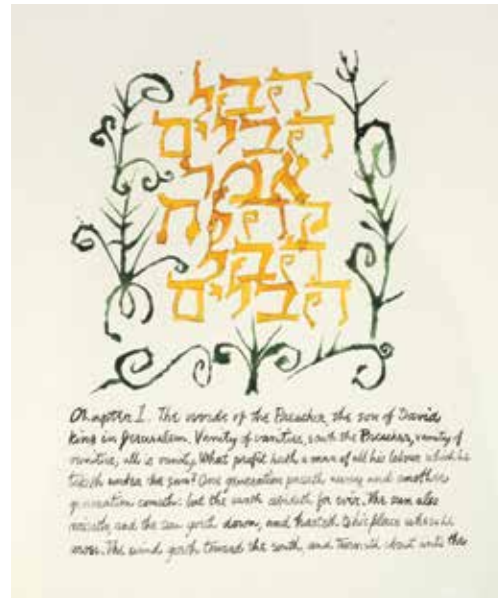 הבל
הבלים
אמר
קהלת
הבל
הבלים
Chapter I. The words of the Preacher, the son of David
king in Jerusalem. Vanity of vanities, saith the Preacher, vanity of
vanities, all is vanity. What profit hath a man of all his labour which he
taketh under the sun? One generation passeth away and another
generation cometh: but the earth abideth for ever. The sun also
riseth, and the sun goeth down, and hasteth to his place where he
arose. The wind goeth toward the south, and turneth about unto the